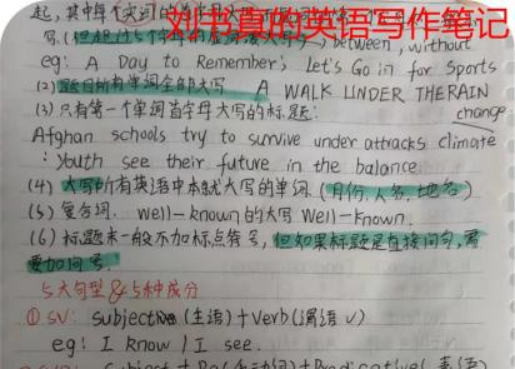 刘书真的英语写作笔记
起，其中每个实词的首字母大写
写.(但超过5个字母的虚词须大写) between, without
eg: A Day to Remember; Let's Go in for Sports
(2) 题目所有单词全部大写 A WALK UNDER THERAIN
(3) 只有第一个单词首字母大写的标题:
change
Afghan schools try to survive under attracks climate
: Youth see their future in the balance
(4) 大写所有英语中本就大写的单词.(月份、人名、地名)
(5) 复合词. well-known的大写 Well-Known.
(6) 标题末一般不加标点符号,但如果标题是直接问句,需
要加问号.
5大句型&5种成分
① SV: subject(主语)+Verb(谓语 V)
eg: I know / I see.